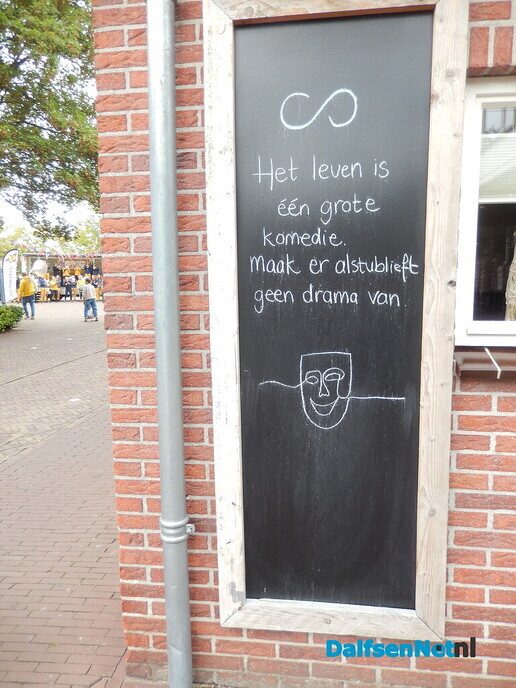 Het leven is
één grote
komedie.
Maak er alstublieft
geen drama van
DalfsenNet.nl